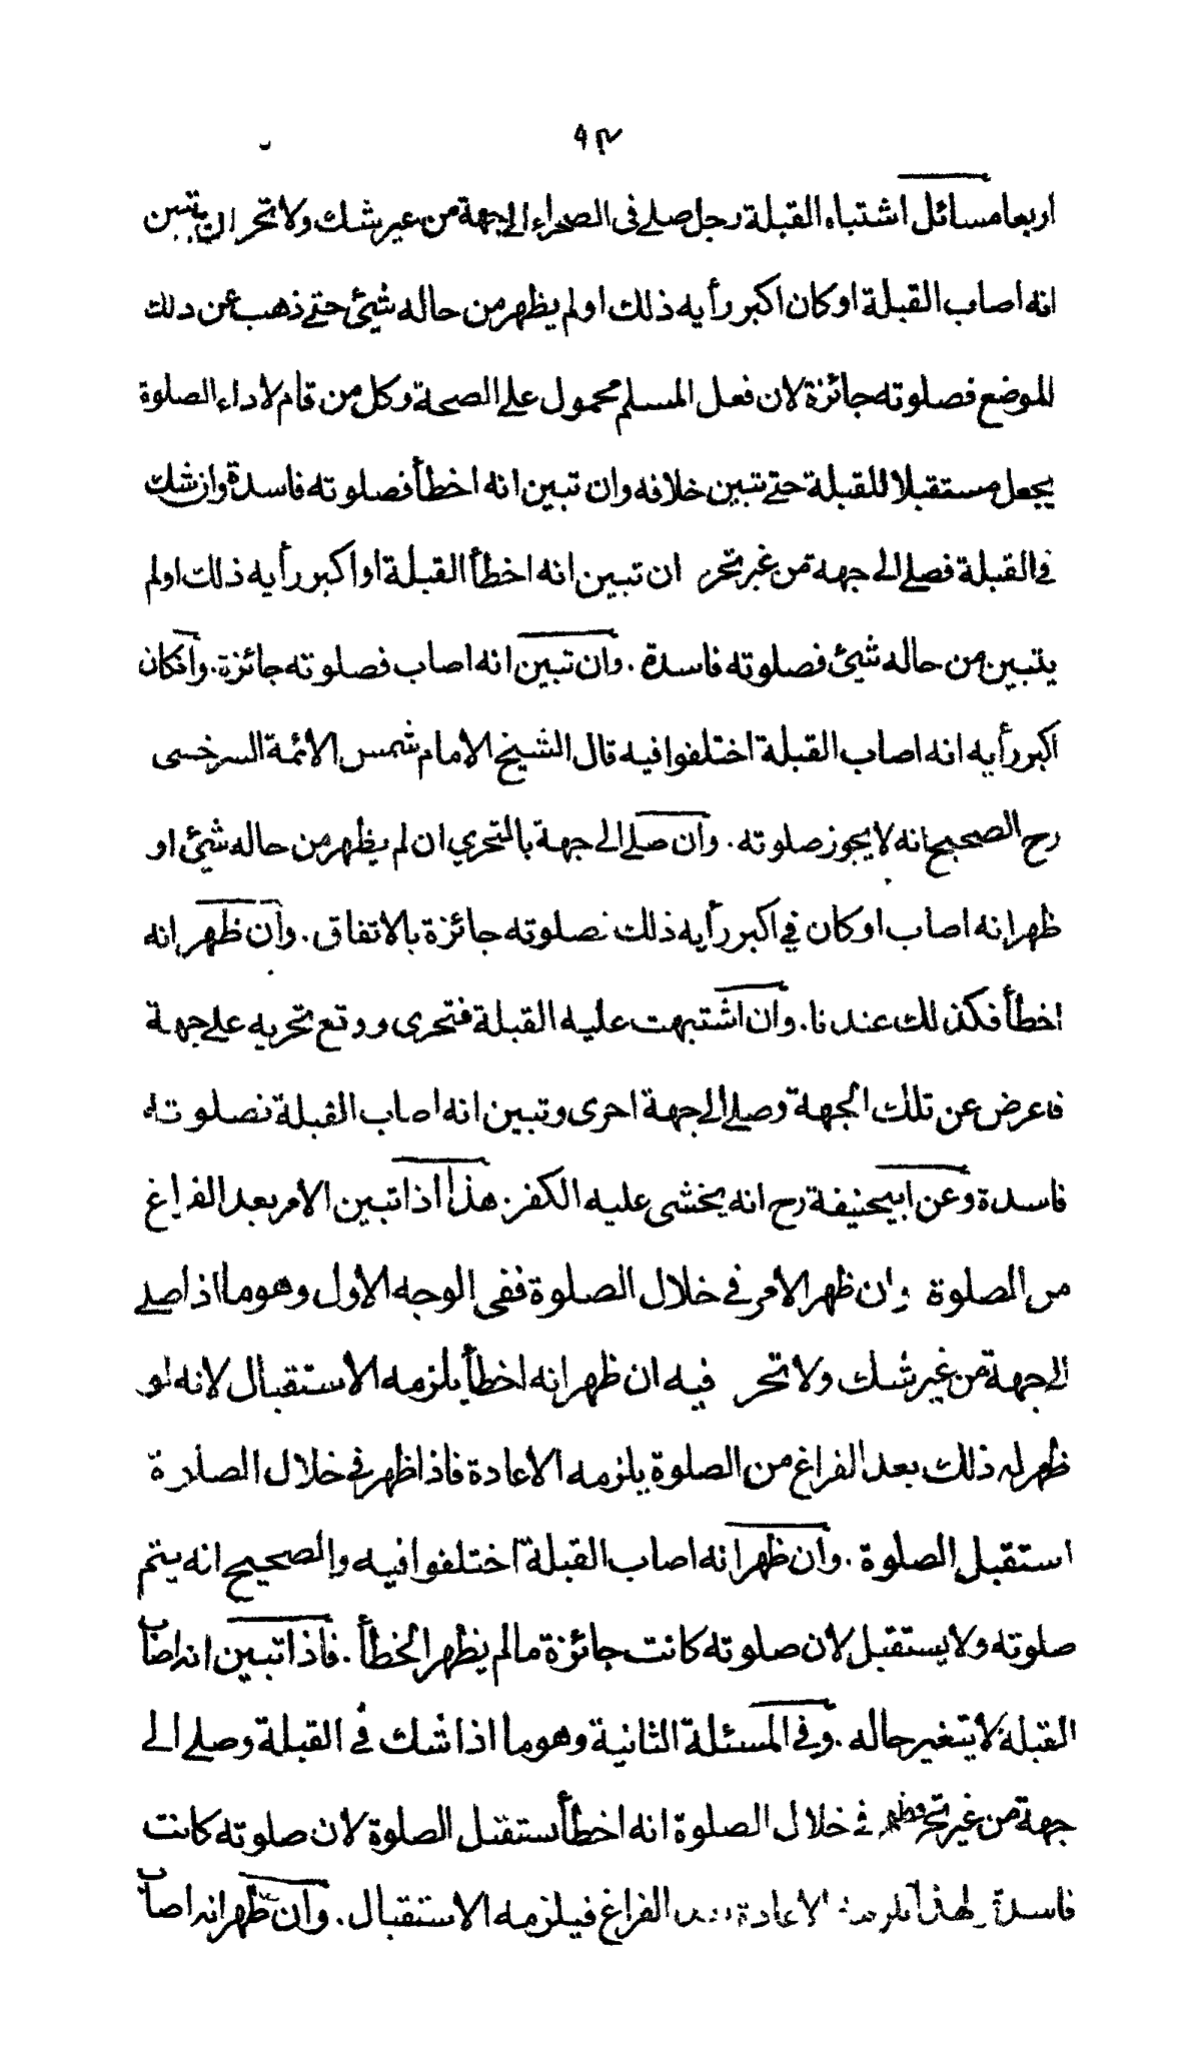 ٩٣
اربعا مسائل اشتباه القبلة رجل صلے فی الصحراء الی جهة من غير شك ولا تحر ان تبين
انه اصاب القبلة او كان اكبر رأيه ذلك او لم يظهر من حاله شيئ حتے ذهب عن ذلك
الموضع فصلوته جائزة لان فعل المسلم محمول علے الصحة وكل من قام لاداء الصلوة
يجعل مستقبلا للقبلة حتے تبين خلافه وان تبين انه اخطأ فصلوته فاسدة وان شك
في القبلة فصلے الے جهة من غير تحر ان تبين انه اخطأ القبلة او اكبر رأيه ذلك او لم
يتبين من حاله شيئ فصلوته فاسدة . وان تبين انه اصاب فصلوته جائزة . وانكان
اكبر رأيه انه اصاب القبلة اختلفوا فيه قال الشيخ الامام شمس الائمة السرخسی
رح الصحيح انه لا يجوز صلوته . وان صلے الے جهة بالتحري ان لم يظهر من حاله شيئ او
ظهر انه اصاب او كان في اكبر رأيه ذلك فصلوته جائزة بالاتفاق . وان ظهر انه
اخطأ فكذلك عندنا . وان اشتبهت عليه القبلة فتحری ووقع تحريه علے جهة
فاعرض عن تلك الجهة وصلے الے جهة اخری وتبين انه اصاب القبلة فصلوته
فاسدة وعن ابيحنيفة رح انه يخشی عليه الكفر . هذا اذا تبين الامر بعد الفراغ
من الصلوة وان ظهر الامر في خلال الصلوة ففی الوجه الاول وهو ما اذا صلے
الے جهة من غير شك ولا تحر فيه ان ظهر انه اخطأ يلزمه الاستقبال لانه لو
ظهر له ذلك بعد الفراغ من الصلوة يلزمه الاعادة فاذا ظهر في خلال الصلوة
استقبل الصلوة . وان ظهر انه اصاب القبلة اختلفوا فيه والصحيح انه يتم
صلوته ولا يستقبل لان صلوته كانت جائزة ما لم يظهر الخطأ . فاذا تبين انه اصاب
القبلة لا يتغير حاله . وفي المسئلة الثانية وهو ما اذا شك في القبلة وصلے الے
جهة من غير تحر وظهر في خلال الصلوة انه اخطأ ستقبل الصلوة لان صلوته كانت
فاسدة لهذا تلزمه الاعادة بعد الفراغ فيلزمه الاستقبال . وان ظهر انه اصاب